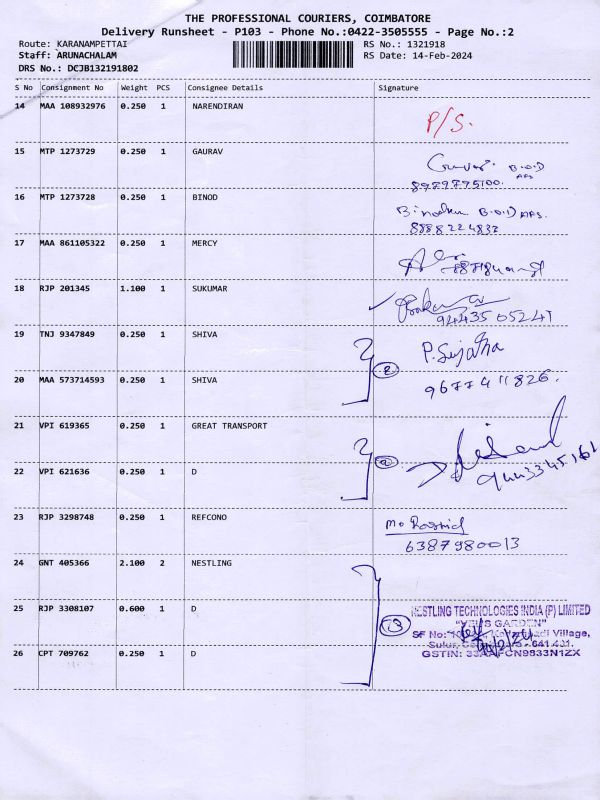 THE PROFESSIONAL COURIERS, COIMBATORE
Delivery Runsheet - P103 - Phone No.:0422-3505555 - Page No.:2
Route: KARANAMPETTAI RS No.: 1321918
Staff: ARUNACHALAM RS Date: 14-Feb-2024
DRS No.: DCJB132191802
S No Consignment No Weight PCS Consignee Details Signature
14 MAA 108932976 0.250 1 NARENDIRAN P/S.
15 MTP 1273729 0.250 1 GAURAV B.O.D
8979775100.
16 MTP 1273728 0.250 1 BINOD B.O.D
8888224832
17 MAA 861105322 0.250 1 MERCY
18 RJP 201345 1.100 1 SUKUMAR
9443505247
19 TNJ 9347849 0.250 1 SHIVA P.Sujatha
2
20 MAA 573714593 0.250 1 SHIVA 9677411826.
21 VPI 619365 0.250 1 GREAT TRANSPORT
2 9443345161
22 VPI 621636 0.250 1 D
23 RJP 3298748 0.250 1 REFCONO Mo Rashid
6387980013
24 GNT 405366 2.100 2 NESTLING
25 RJP 3308107 0.600 1 D 3 NESTLING TECHNOLOGIES INDIA (P) LIMITED
GARDEN"
SF No: Village,
Sulur, 641 401.
26 CPT 709762 0.250 1 D